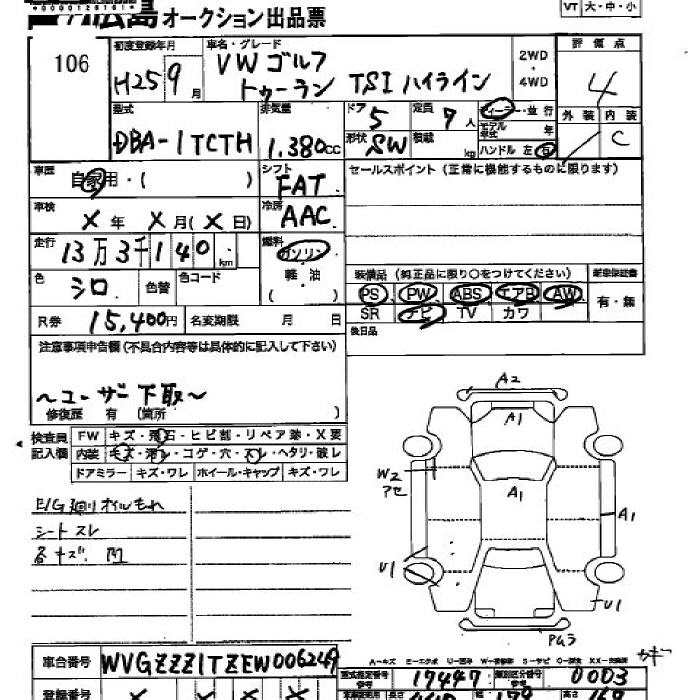 広島 オークション出品票
VT 大・中・小
106
初度登録年月 H25 9月
車名・グレード VW ゴルフ
トゥーラン TSI ハイライン
2WD
・
4WD
評価点
4
外装 内装
C
型式 DBA-1TCTH
排気量 1.380cc
ドア 5
形状 SW
定員 7人
積載 kg
ディーラー・並行
モデル年式 年
ハンドル 左 右
車歴 自家用・( )
シフト FAT
冷房 AAC
車検 X年 X月(X日)
セールスポイント(正常に機能するものに限ります)
走行 13万3千140km
燃料 ガソリン
軽・油
( )
色 シロ 色替 色コード
装備品(純正品に限り○をつけてください)
新車保証書
PS PW ABS エアB AW
有・無
SR ナビ TV カワ
後日品
R券 15,400円 名変期限 月 日
注意事項申告欄(不具合内容等は具体的に記入して下さい)
〜ユーザー下取〜
修復歴 有(箇所 )
検査員記入欄
FW キズ・飛石・ヒビ割・リペア跡・X要
内装 キズ・汚レ・コゲ・穴・スレ・ヘタリ・破レ
ドアミラー キズ・ワレ ホイール・キャップ キズ・ワレ
E/G廻りオイルもれ
シートスレ
各キズ 凹
A2
A1
W2
アセ
A1
A1
U1
U1
PG3
サギ
A-キズ E-エクボ U-凹み W-補修跡 S-サビ C-腐食 XX-交換済
車台番号 WVGZZZ1TZEW006249
型式指定番号 17447
類別区分番号 0003
登録番号